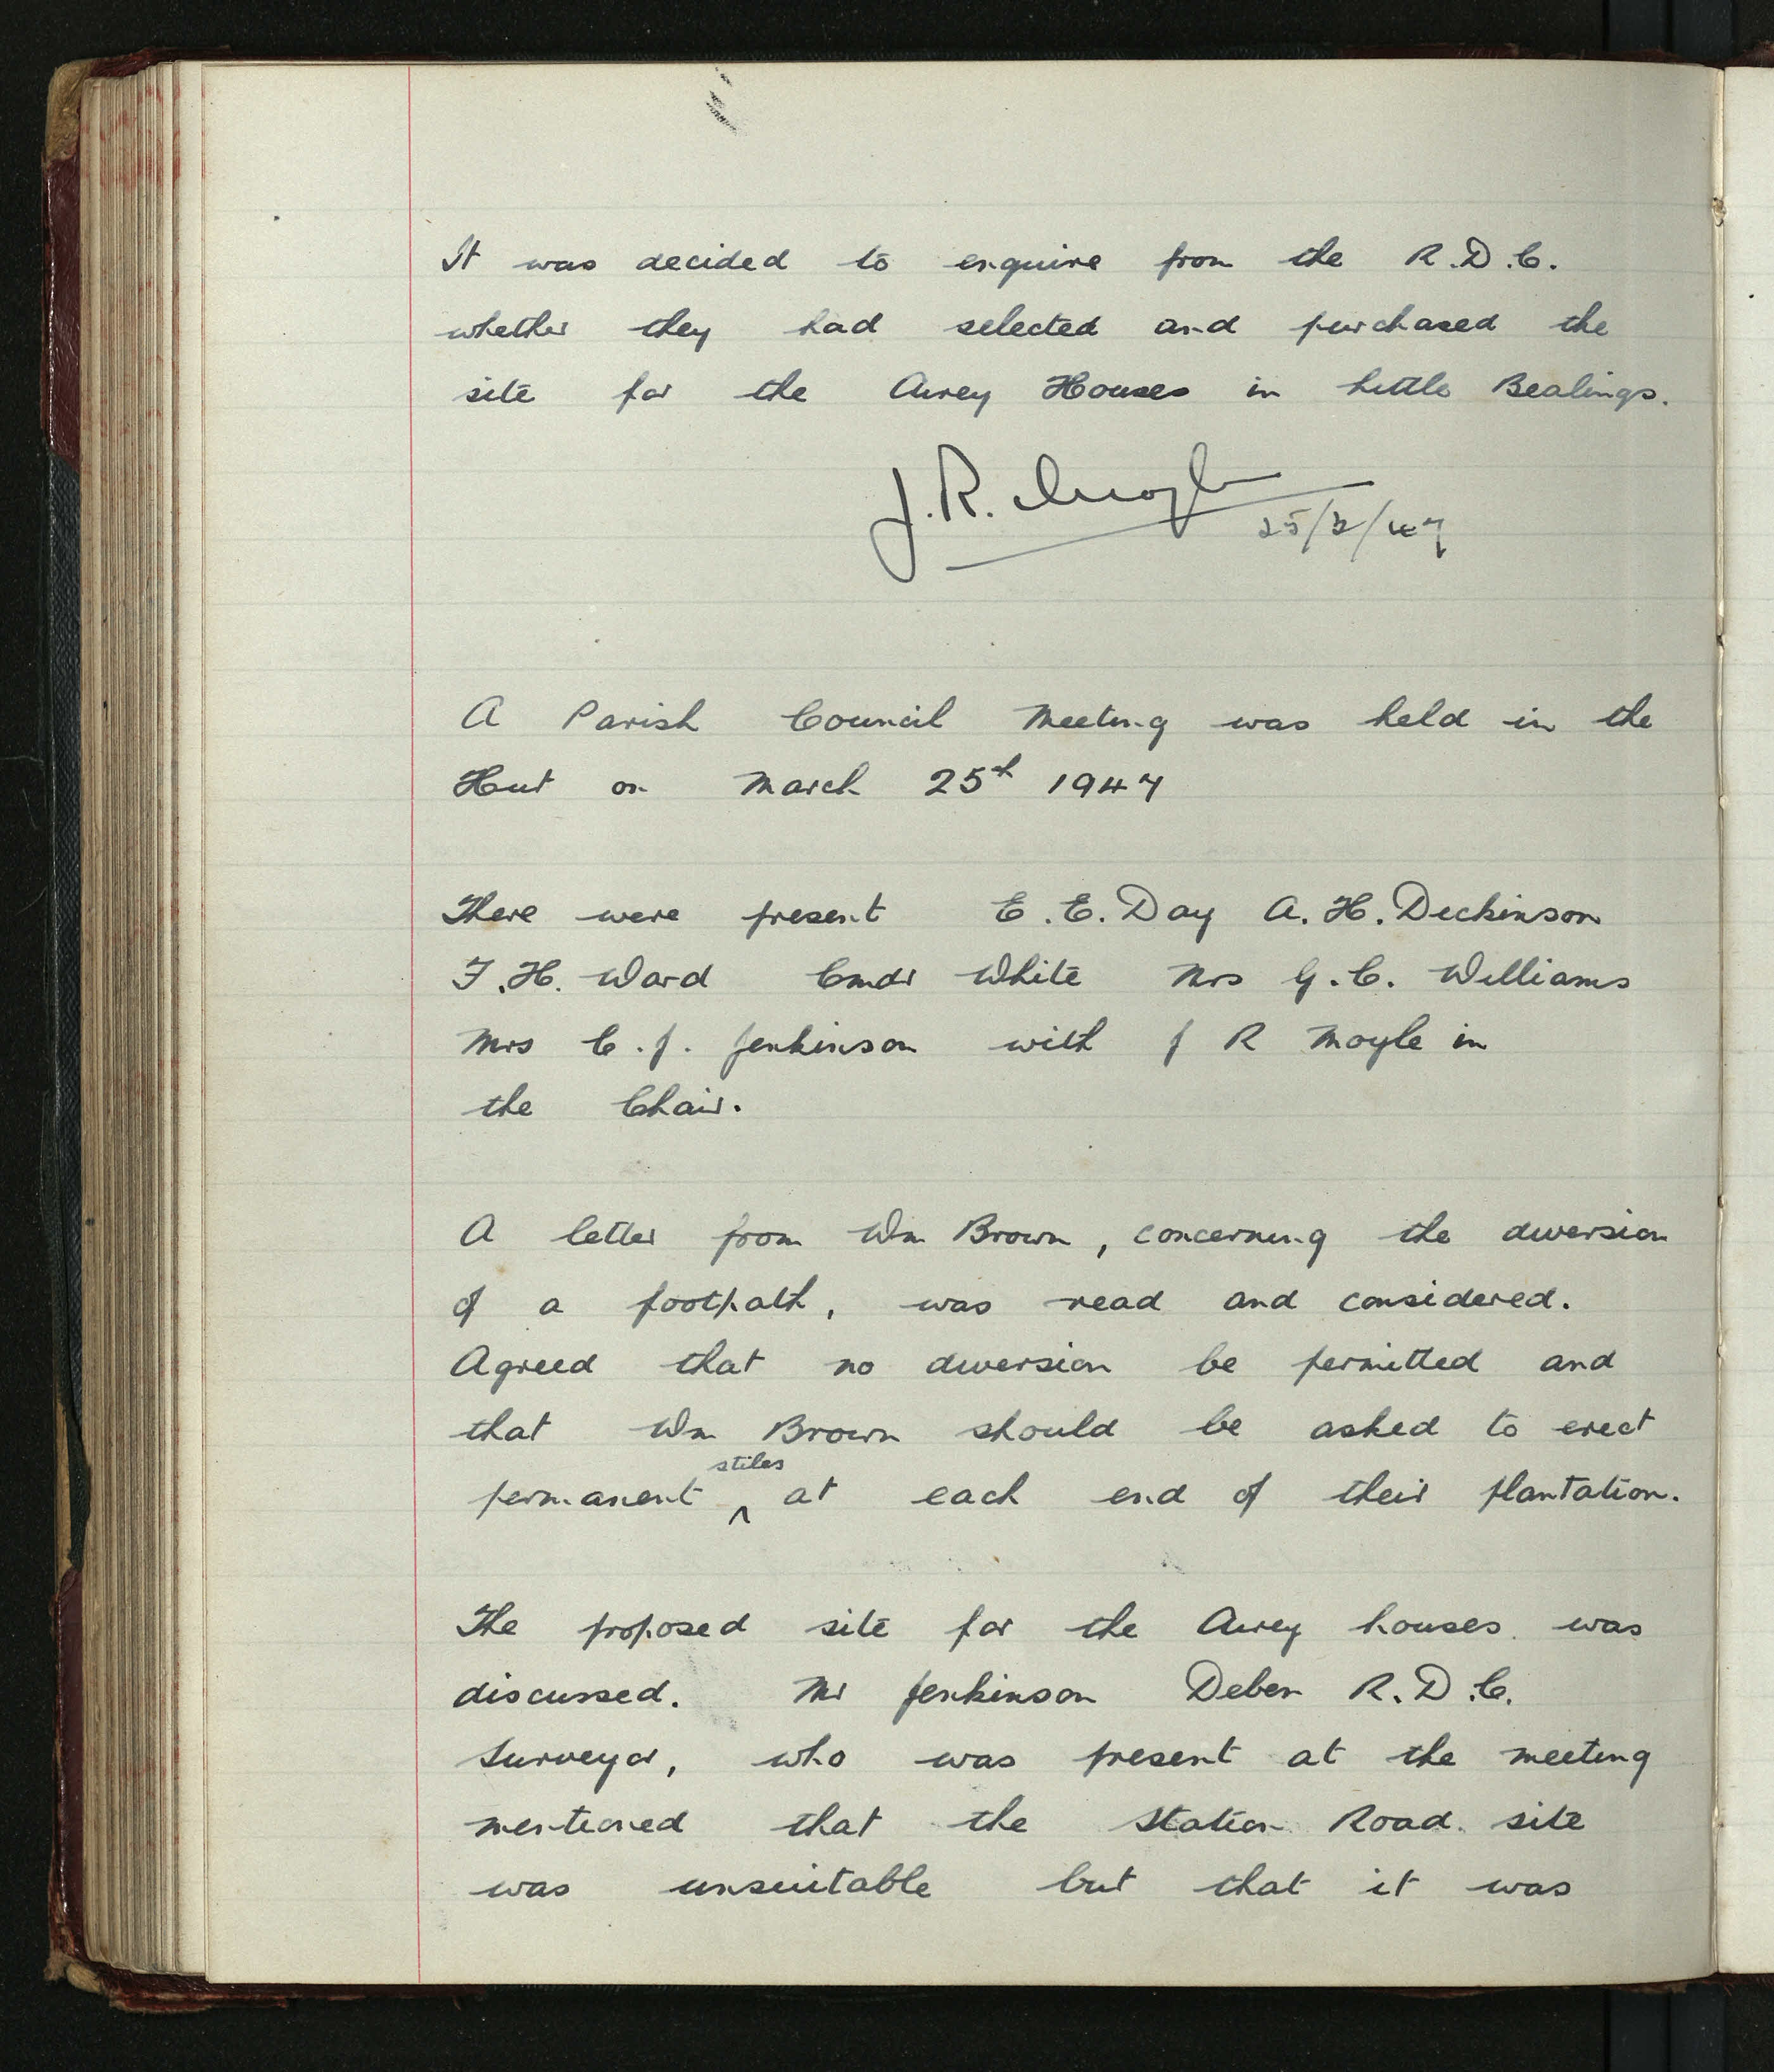 It was decided to enquire from the R.D.C.
whether they had selected and purchased the
site for the Airey Houses in Little Bealings.
J.R. Moyle
25/3/47
A Parish Council Meeting was held in the
Hut on March 25th 1947
There were present E.E. Day A.H. Dickinson
F.H. Ward Cmdr White Mrs G.C. Williams
Mrs C.J. Jenkinson with J R Moyle in
the Chair.
A letter from Wm Brown, concerning the diversion
of a footpath, was read and considered.
Agreed that no diversion be permitted and
that Wm Brown should be asked to erect
permanent ^stiles at each end of their plantation.
The proposed site for the Airey houses was
discussed. Mr Jenkinson Deben R.D.C.
Surveyor, who was present at the meeting
mentioned that the Station Road site
was unsuitable but that it was